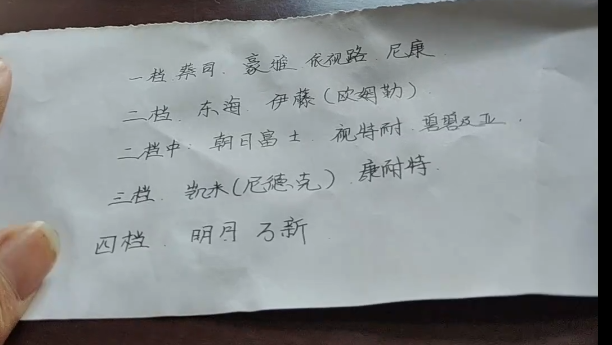 一档 蔡司. 豪雅 依视路. 尼康
二档. 东海. 伊藤(欧姆勒)
二档中: 朝日富士. 视特耐. 碧碧及亚.
三档. 凯米(尼德克). 康耐特.
四档. 明月 万新